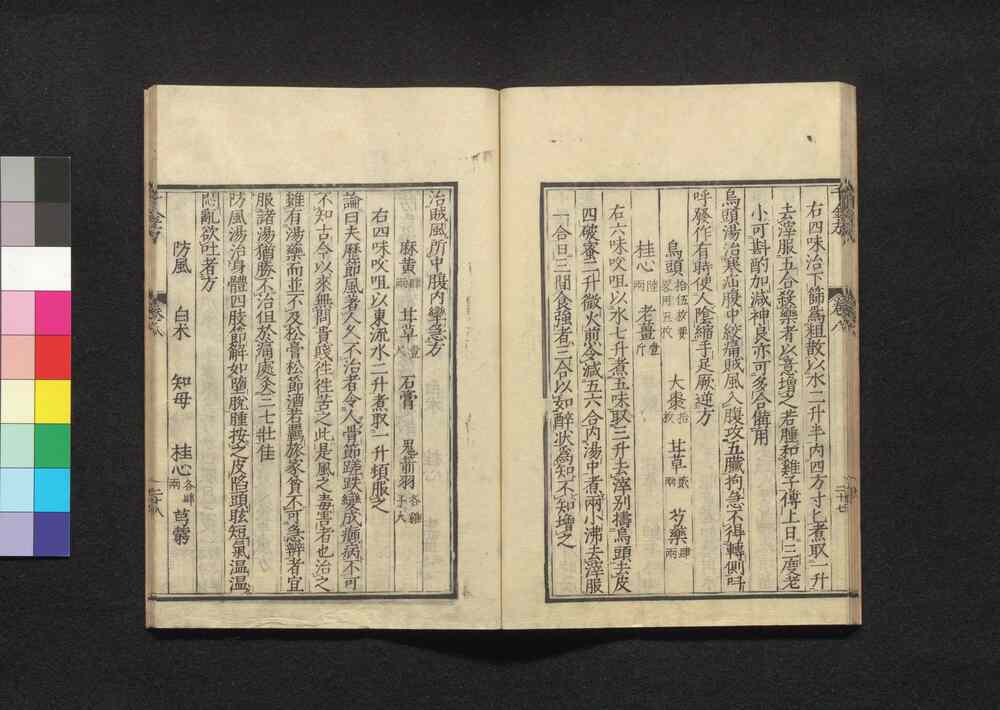 右四味治下篩爲麤散以水二升半內四方寸匕煮取一升
去滓服五合發藥者以意增之若腫和雞子傅上日三度老
小可斟酌加減神良亦可多合備用
烏頭湯治寒疝腹中絞痛賊風入腹攻五臟拘急不得轉側叫
呼發作有時使人陰縮手足厥逆方
烏頭 大棗 甘草 芍藥肆兩
桂心陸兩 老薑壹斤
右六味㕮咀以水七升煮五味取三升去滓別擣烏頭去皮
四破蜜二升微火煎令減五六合內湯中煮兩小沸去滓服
一合日三間食強者三合以如醉狀爲知不知增之
治賊風所中腹內攣急方
麻黃肆兩 甘草壹尺 石膏 鬼箭羽各雞子大
右四味㕮咀以東流水二升煮取一升頓服之
論曰夫曆節風著人久不治者令人骨節蹉跌變成癲病不可
不知古今以來無問貴賤往往苦之此是風之毒害者也治之
雖有湯藥而並不及松膏松節酒若羈旅家貧不可急辨者宜
服諸湯猶勝不治但於痛處灸三七壯佳
防風湯治身體四肢節解如墮脫腫按之皮陷頭眩短氣溫溫
悶亂欲吐者方
防風 白朮 知母 桂心各肆兩 芎藭
卷八